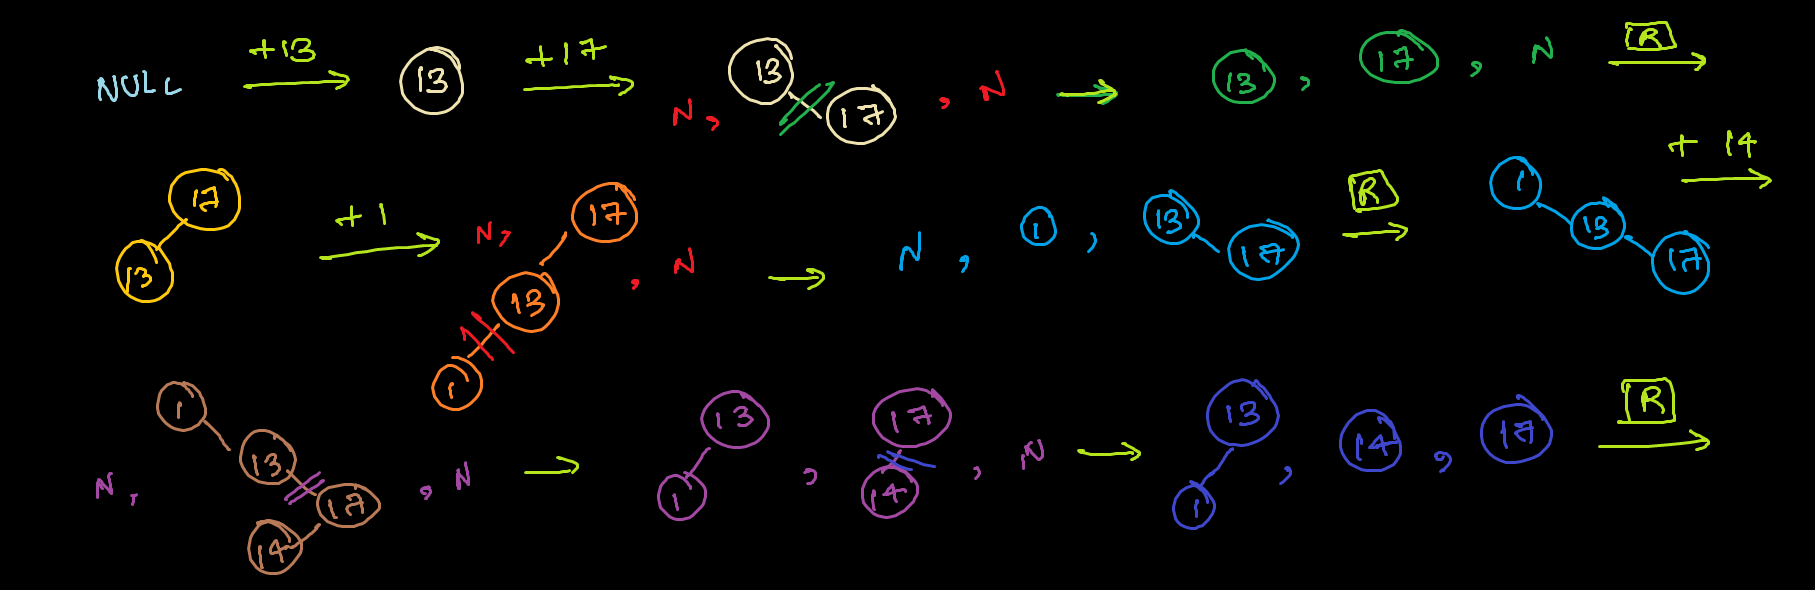 NULL +13 13 +17 N, 13 17 , N 13 , 17 , N R
17 13 +1 N, 17 13 1 , N N , 1 , 13 17 R 1 13 17 + 14
N, 1 13 17 14 , N 13 1 , 17 14 , N 13 1 , 14 , 17 R